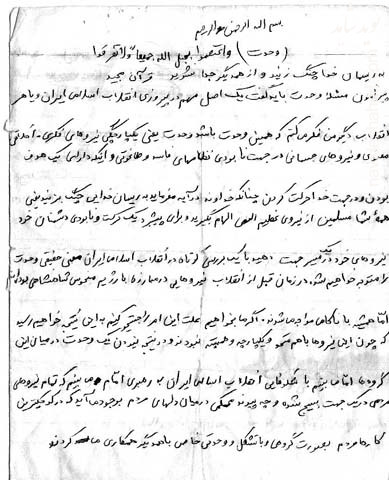 بسم الله الرحمن الرحیم
(وحدت) واعتصموا بحبل الله جمیعا ولا تفرقوا
به ریسمان خدا چنگ زنید و از همدیگر جدا نشوید قرآن مجید
پیرامون مسئله وحدت باید گفت یک اصل مهم در پیروزی انقلاب اسلامی ایران و یا هر
انقلاب دیگر من فکر می‌کنم که همین وحدت باشد وحدت یعنی یکپارچگی نیروهای فکری
و نیروهای جسمانی در جهت نابودی نظامهای فاسد و طاغوتی و اینکه دارای یک هدف
بودن و در جهت خدا حرکت کردن چنانکه خداوند در آیه میفرماید به ریسمان خدایی چنگ بزنید یعنی
همه شما مسلمین از نیروی عظیم الهی الهام بگیرید و برای پیشبرد یک حرکت و نابودی دشمنان خود
نیروهای خود را در یک مسیر جهت دهید با یک بررسی کوتاه در انقلاب اسلامی ایران معنی حقیقی وحدت
را متوجه خواهیم شد. در زمان قبل از انقلاب نیروهایی در مبارزه با رژیم منحوس شاهنشاهی بودند
امّا همیشه با ناکامی مواجه می‌شدند. اگر ما بخواهیم علت این امر را جستجو کنیم به این نتیجه خواهیم رسید
که چون این نیروها با هم متحد و یکپارچه و همبسته نبودند و در نتیجه نبودن یک وحدت در میان این
گروه‌ها امّا می‌بینیم با شکوفایی انقلاب اسلامی ایران به رهبری امام می‌بینیم که تمام نیروهای
مردمی در یک جهت بسیج شده و چه پیوند محکمی در میان دلهای مردم بوجود می‌آید که در کوچکترین
کارها مردم بصورت گروهی و با تشکل و وحدتی خاص با همدیگر همکاری می‌کردند